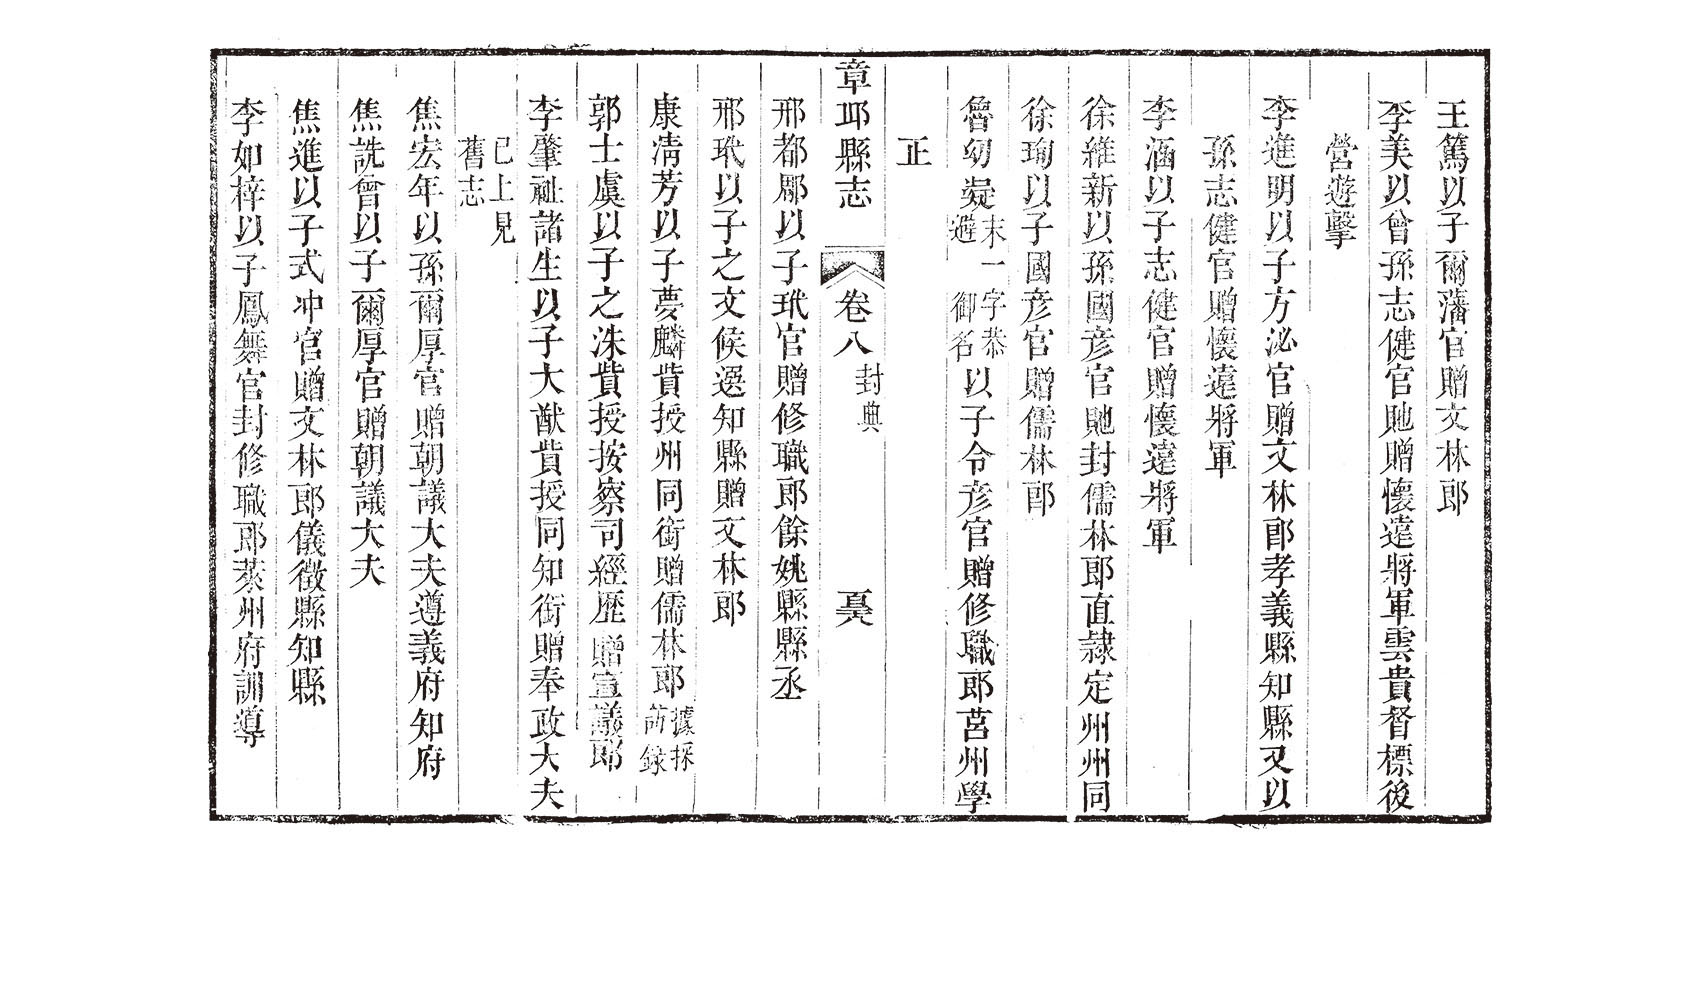 王篤以子爾藩官贈文林郎
李美以曾孫志健官貤贈懷遠將軍雲貴督標後
營遊擊
李進明以子方泌官贈文林郎孝義縣知縣又以
孫志健官贈懷遠將軍
李涵以子志健官贈懷遠將軍
徐維新以孫國彥官貤封儒林郎直隸定州州同
徐珣以子國彥官贈儒林郎
魯幼凝末一字恭避御名以子令彥官贈修職郎莒州學
正
章邱縣志 卷八 封典
邢都郿以子玳官贈修職郎餘姚縣縣丞
邢玳以子之文候選知縣贈文林郎
康淸芳以子夢麟貲授州同銜贈儒林郎據採訪錄
郭士虞以子之洙貲授按察司經歷贈宣議郎
李肇祉諸生以子大猷貲授同知銜贈奉政大夫
已上見舊志
焦宏年以孫爾厚官贈朝議大夫遵義府知府
焦詵曾以子爾厚官贈朝議大夫
焦進以子式冲官贈文林郎儀徵縣知縣
李如梓以子鳳舞官封修職郎萊州府訓導